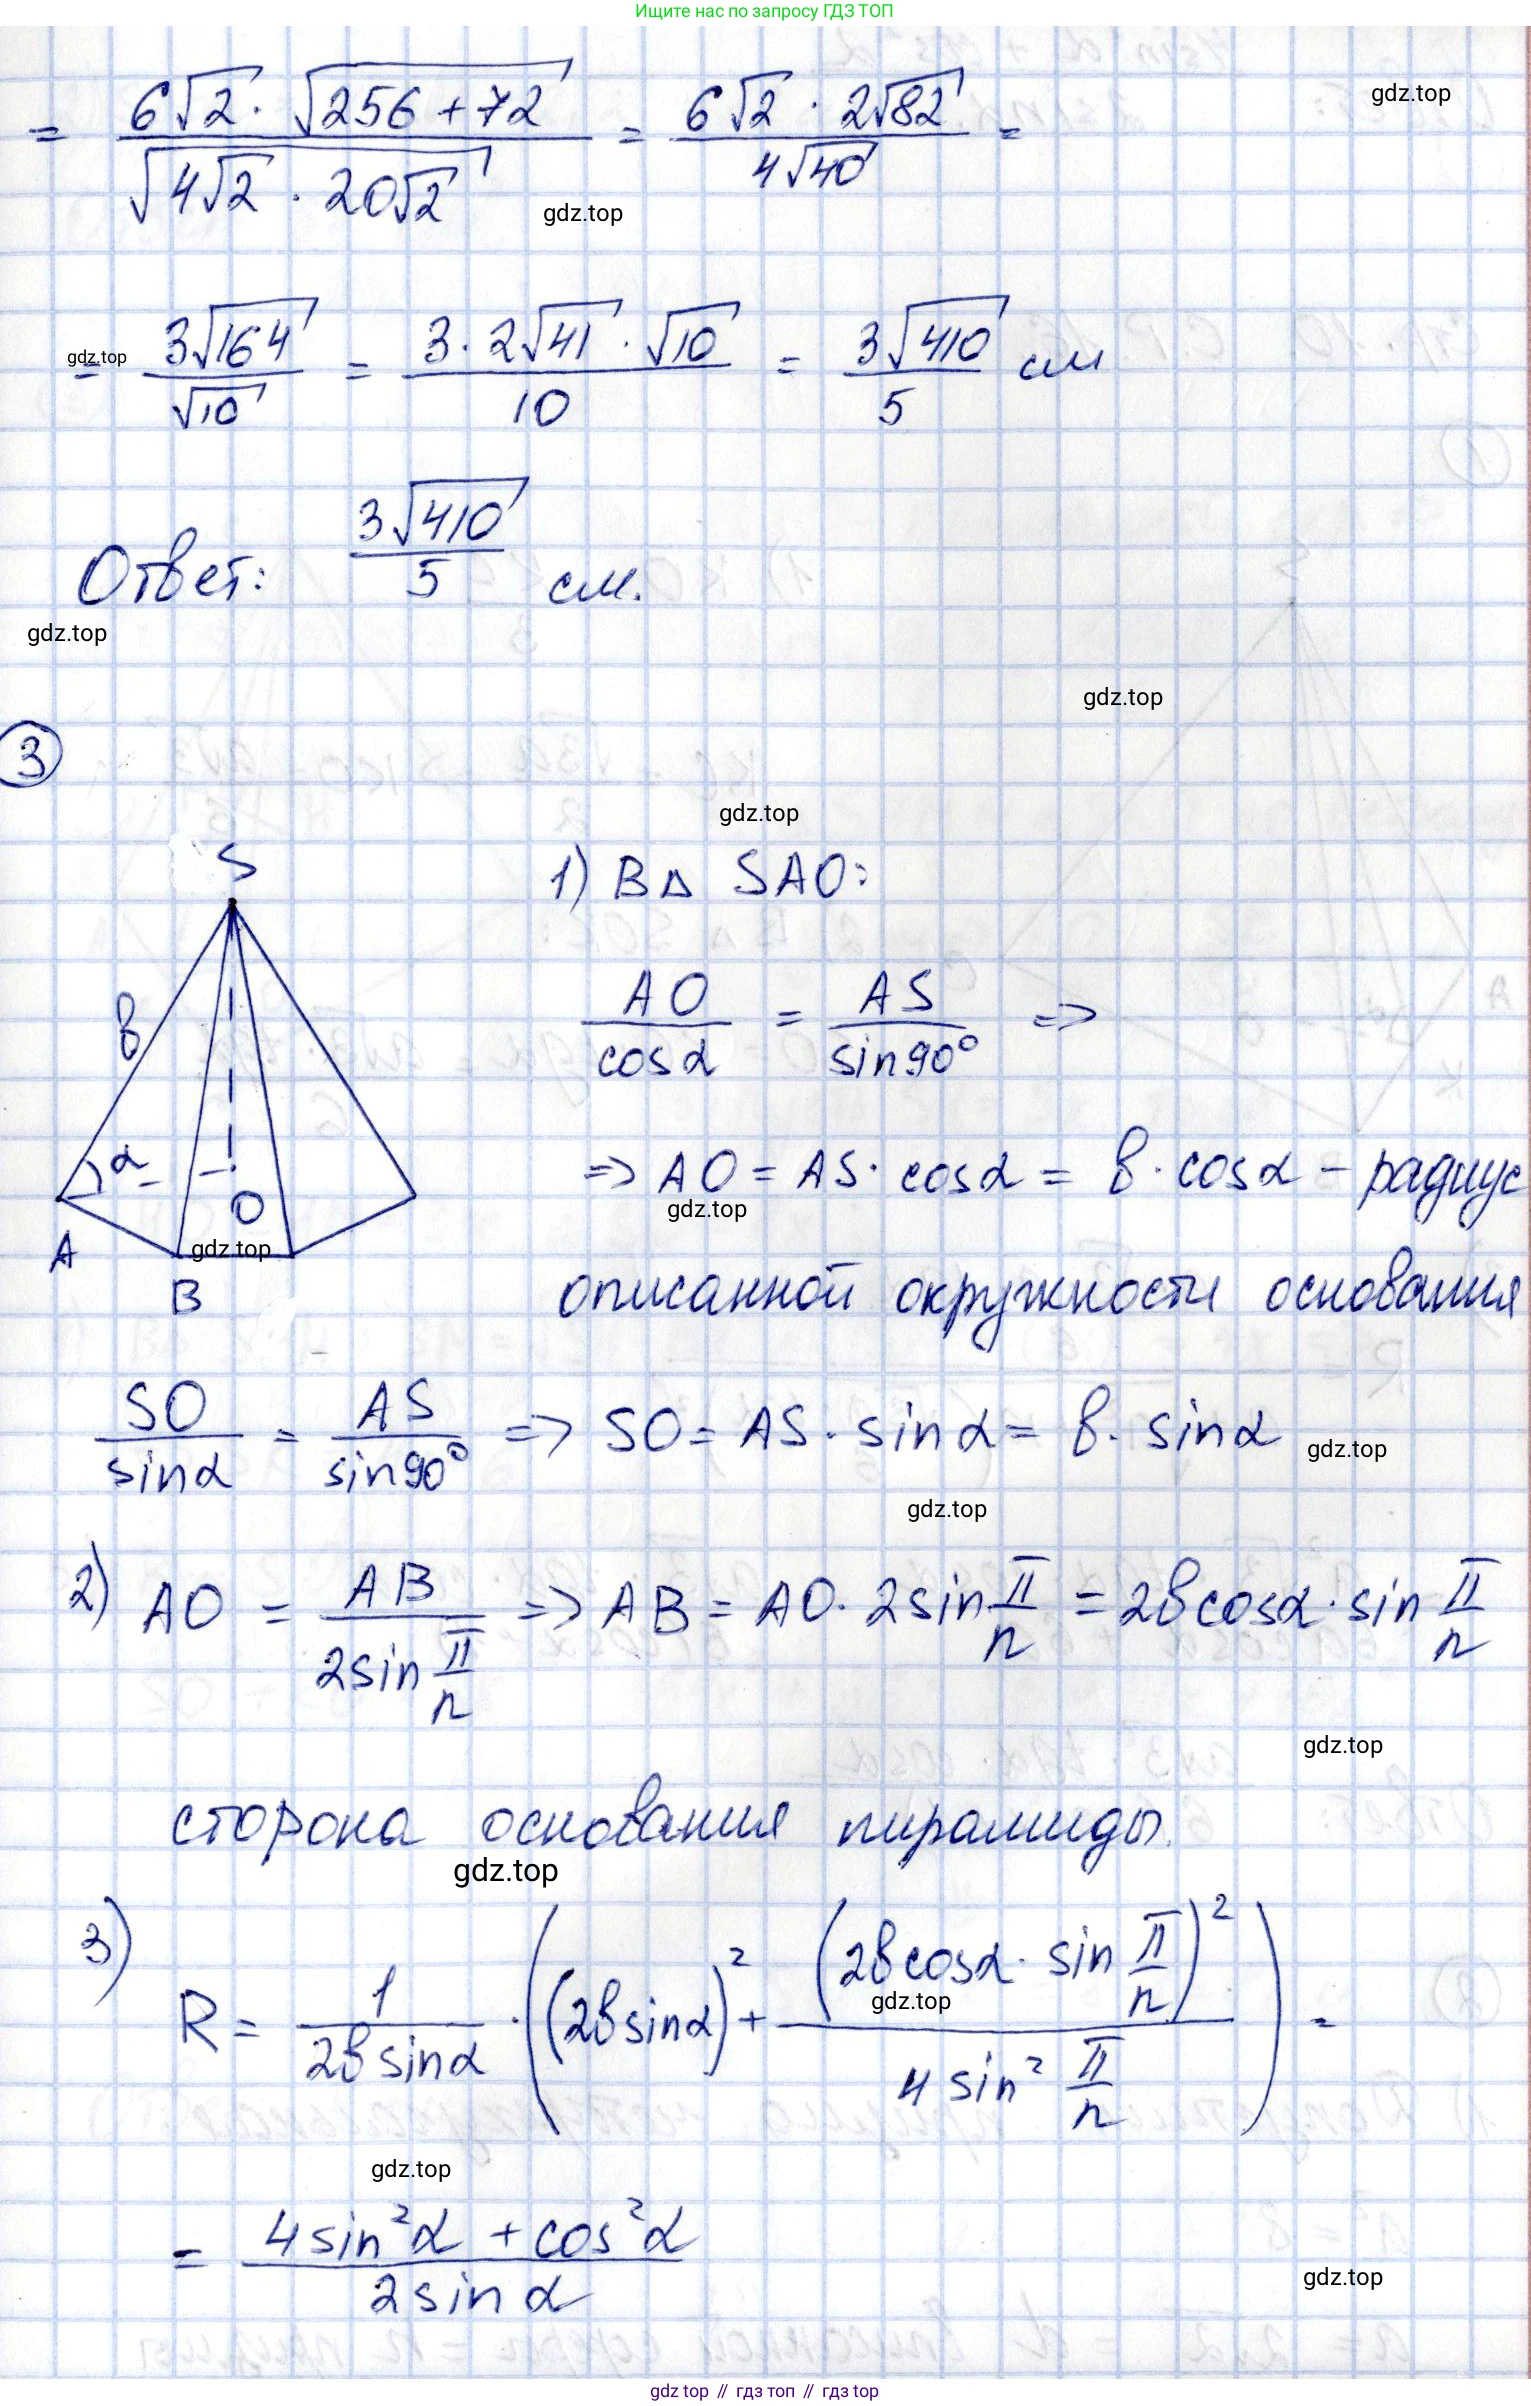 Ищите нас по запросу ГДЗ ТОП
= 6√2 · √(256 + 72) / √(4√2 · 20√2) = 6√2 · 2√82 / 4√40 =
gdz.top
gdz.top
= 3√164 / √10 = 3 · 2√41 · √10 / 10 = 3√410 / 5 см
gdz.top
Ответ: 3√410 / 5 см.
gdz.top
gdz.top
3
gdz.top
S
в
α
O
A
B
gdz.top
1) В △ SAO:
AO / cosα = AS / sin90° =>
=> AO = AS · cosα = в · cosα – радиус
gdz.top
описанной окружности основания
SO / sinα = AS / sin90° => SO = AS · sinα = в · sinα
gdz.top
gdz.top
2) AO = AB / 2sin π/n => AB = AO · 2sin π/n = 2в cosα · sin π/n
gdz.top
сторона основания пирамиды.
gdz.top
3) R = 1 / 2в sinα · ((2в sinα)² + (2в cosα · sin π/n)² / 4 sin² π/n) =
gdz.top
gdz.top
= 4 sin²α + cos²α / 2 sin α
gdz.top
gdz top // гдз топ // gdz top